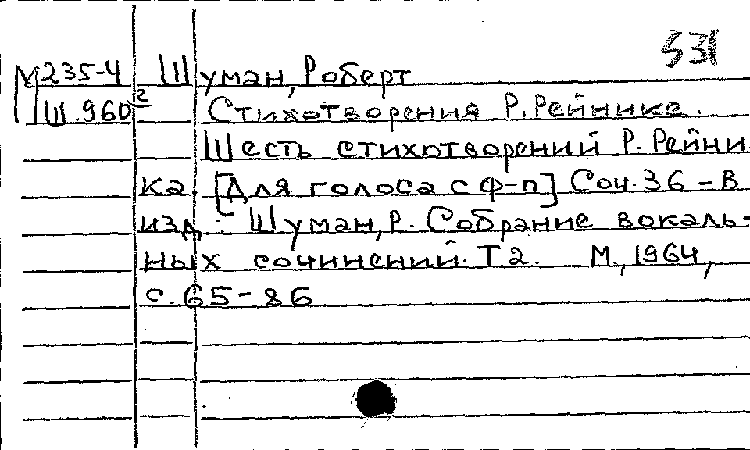 531
М235-4 Шуман, Роберт
Ш 960² Стихотворения Р. Рейнике.
Шесть стихотворений Р. Рейни-
ка. [Для голоса с ф-п] Соч. 36 - В
изд.: Шуман, Р. Собрание вокаль-
ных сочинений. Т 2. М., 1964,
с. 65-86